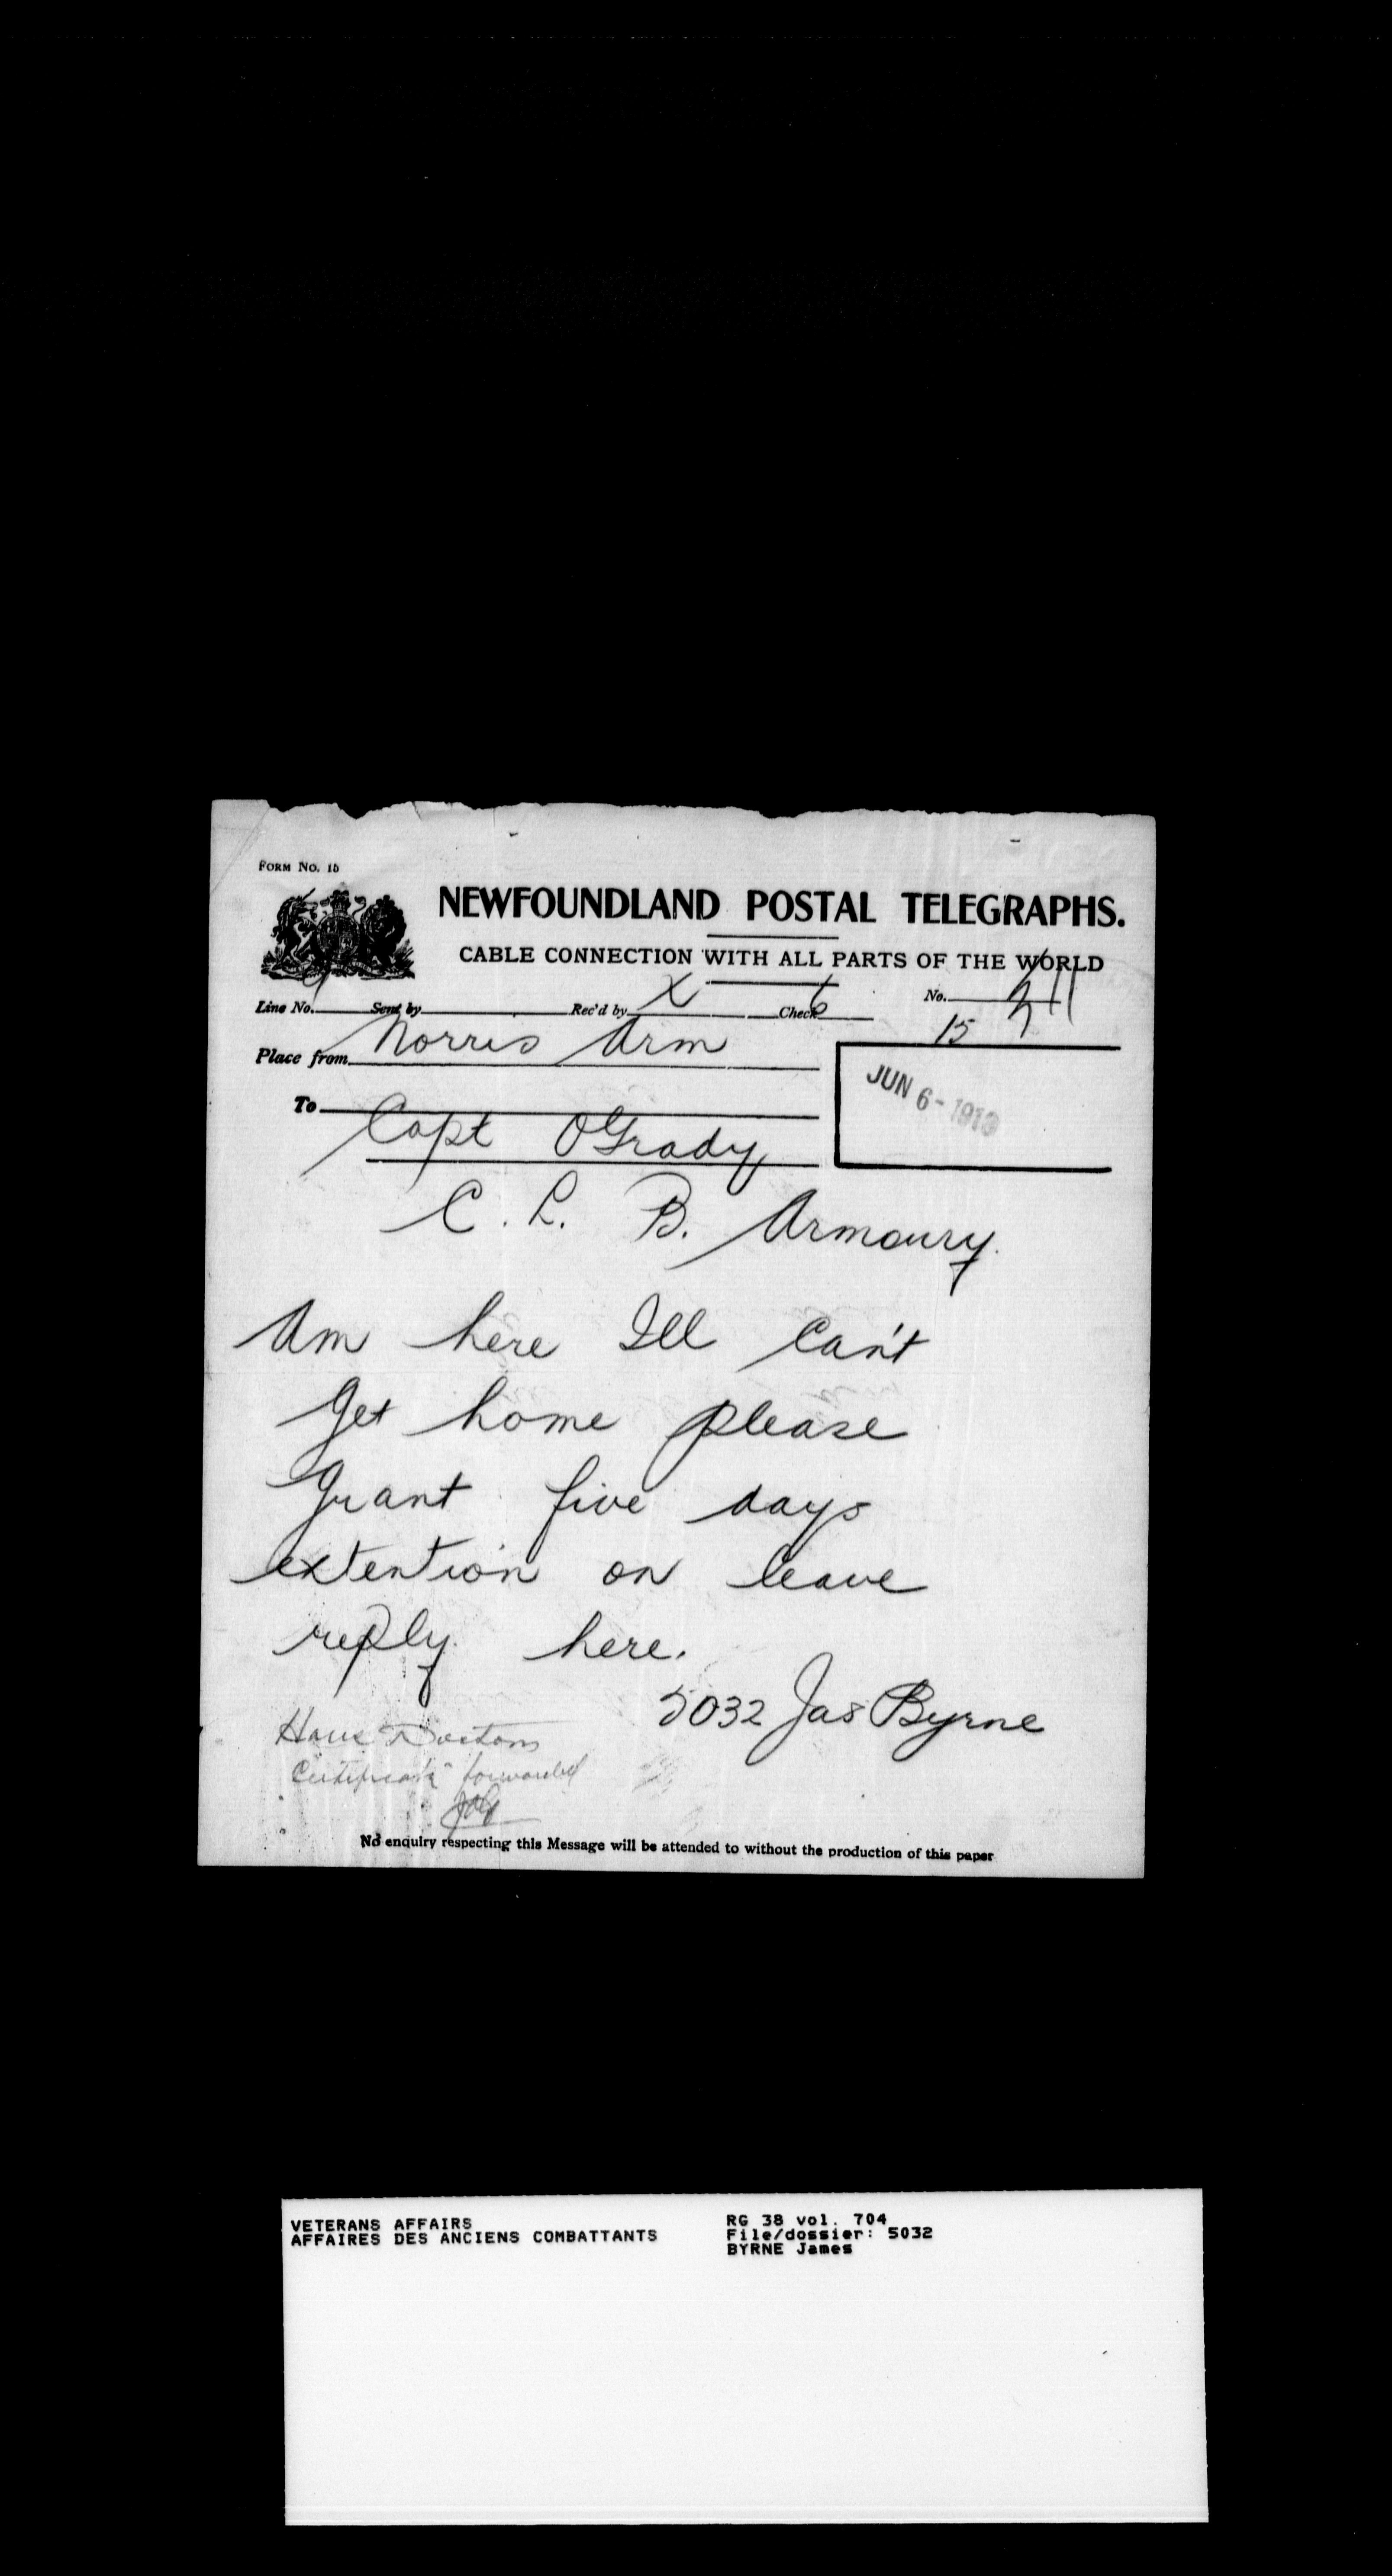 FORM No. 15
NEWFOUNDLAND POSTAL TELEGRAPHS.
CABLE CONNECTION WITH ALL PARTS OF THE WORLD
Line No. Sent by Rec'd by X Check No.
15
Place from Norris Arm
JUN 6 - 191
To
Capt OGrady
C. L. B. Armoury.
Am here Ill Can't
Get home please
Grant five days
extention on leave
reply here.
5032 Jas Byrne
Have Doctors
Certificate forwarded
No enquiry respecting this Message will be attended to without the production of this paper
VETERANS AFFAIRS
AFFAIRES DES ANCIENS COMBATTANTS
RG 38 vol. 704
File/dossier: 5032
BYRNE James